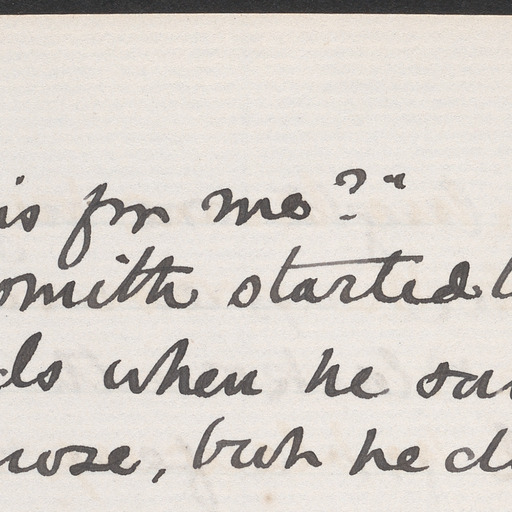 is for me?"
omith started
ds when he
rose, but he